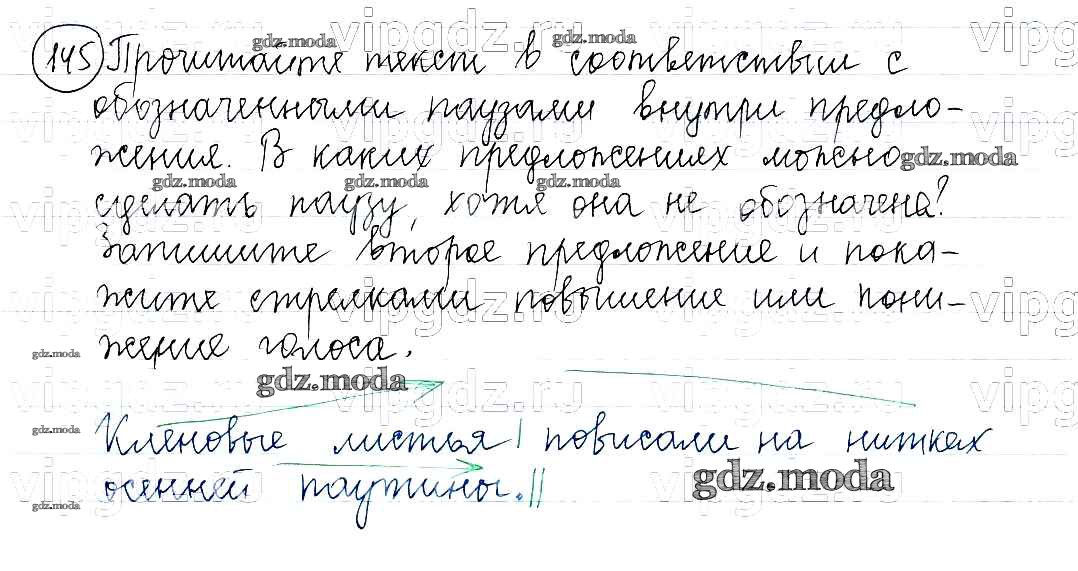 145 Прочитайте текст в соответствии с
обозначенными паузами внутри предло-
жения. В каких предложениях можно
сделать паузу, хотя она не обозначена?
Запишите второе предложение и пока-
жите стрелками повышение или пони-
жение голоса.
Кленовые листья | повисали на нитках
осенней паутины. ||
gdz.moda
vipgdz.ru